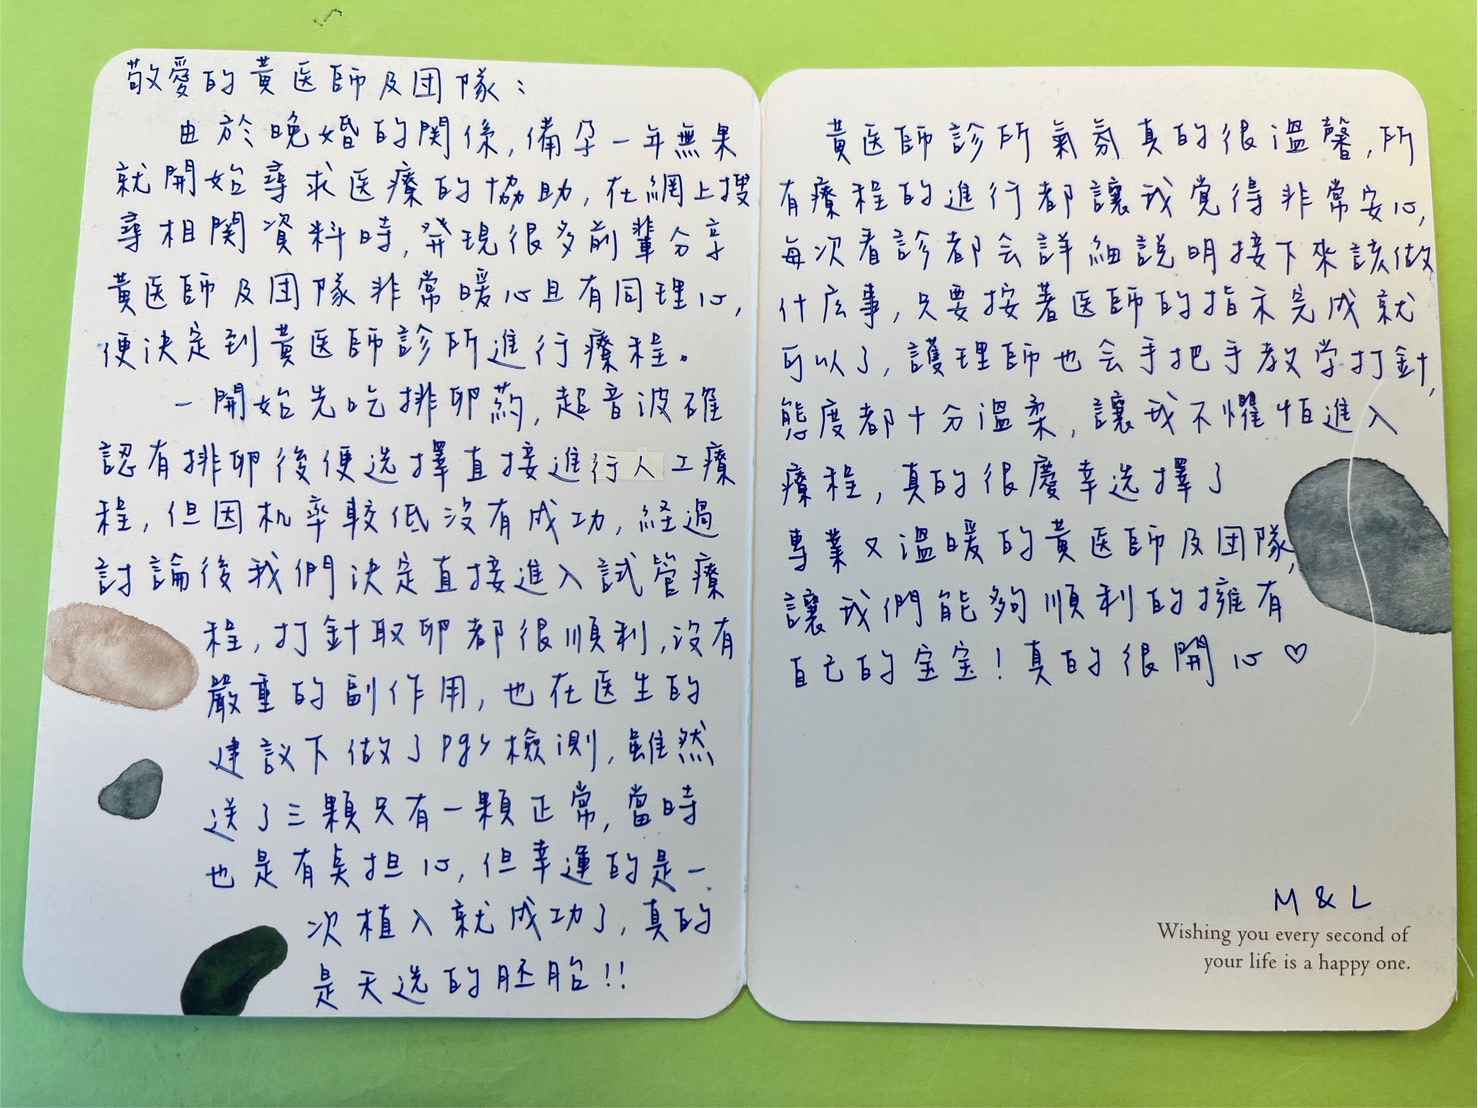 敬愛的黃医師及团隊：
由於晚婚的関係，備孕一年無果
就開始尋求医療的協助，在網上搜
尋相関資料時，発現很多前輩分享
黃医師及团隊非常暖心且有同理心，
便決定到黃医師診所進行療程。
一開始先吃排卵葯，超音波確
認有排卵後便选擇直接進行人工療
程，但因机率較低没有成功，経過
討論後我們決定直接進入試管療
程，打針取卵都很順利，没有
嚴重的副作用，也在医生的
建议下做了pgs檢測，雖然
送了三顆只有一顆正常，當時
也是有奌担心，但幸運的是一
次植入就成功了，真的
是天选的胚胎!!
黃医師診所氣氛真的很溫馨，所
有療程的進行都讓我覚得非常安心，
每次看診都会詳細説明接下來該做
什庅事，只要按著医師的指示完成就
可以了，護理師也会手把手教学打針，
態度都十分溫柔，讓我不懼怕進入
療程，真的很慶幸选擇了
專業又溫暖的黃医師及团隊，
讓我們能夠順利的擁有
自己的宝宝！真的很開心♡
M & L
Wishing you every second of
your life is a happy one.